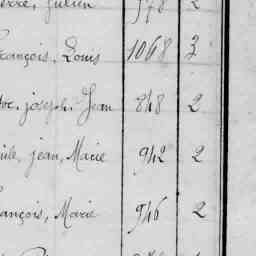 Julien 978 2
François, Louis 1068 3
joseph. Jean 848 2
jean, Marie 942 2
François, Marie 946 2